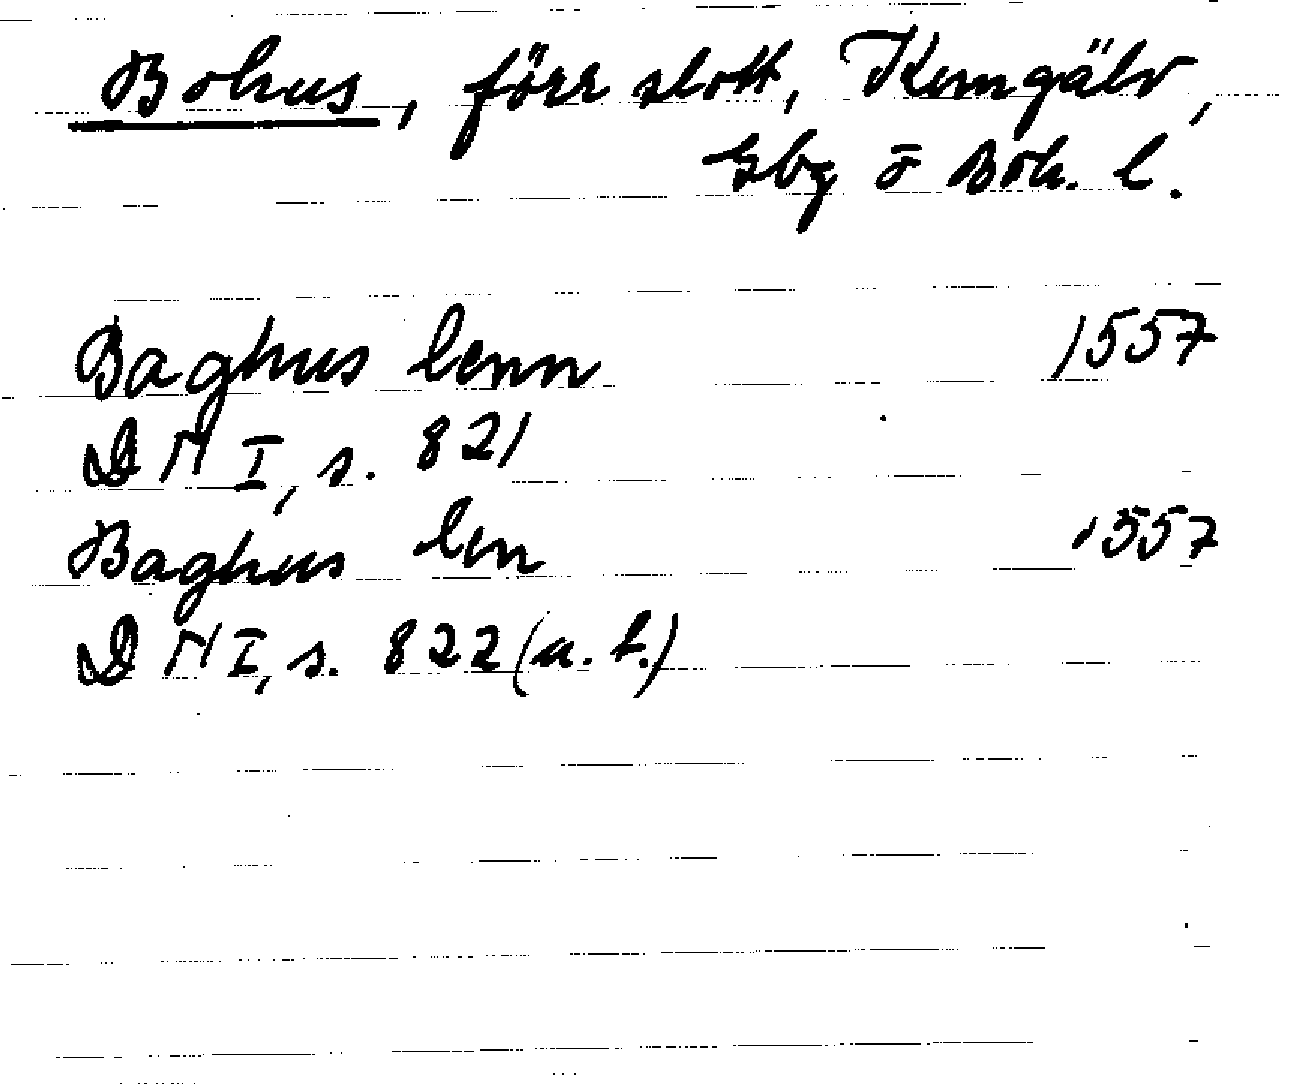 Bohus, förr slott, Kungälv,
Gbg o Boh. l.
Baghus lenn 1557
DN I, s. 821
Baghus len 1557
DN I, s. 822 (a. f.)